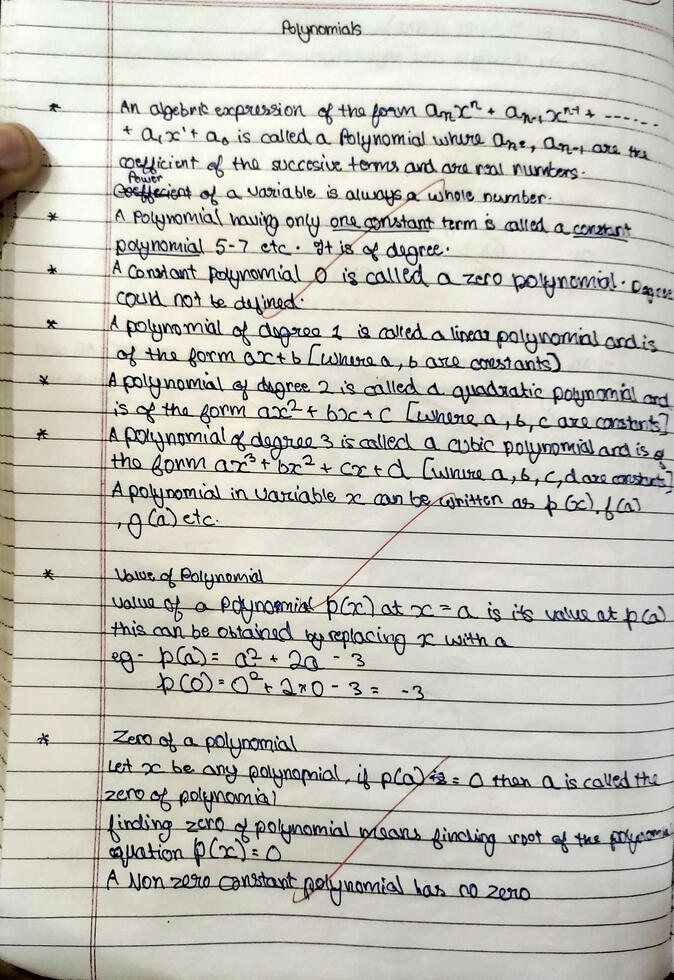 Polynomials
* An algebric expression of the form aₙxⁿ + aₙ₋₁xⁿ⁻¹ + ------
+ a₁x¹ + a₀ is called a Polynomial where aₙ, aₙ₋₁ are the
coefficient of the succesive terms and are real numbers.
Power
of a variable is always a whole number.
* A Polynomial having only one constant term is called a constant
polynomial 5-7 etc. It is of degree.
* A constant polynomial 0 is called a zero polynomial. Degree
could not be defined.
* A polynomial of degree 1 is called a linear polynomial and is
of the form ax+b [where a, b are constants)
* A polynomial of degree 2 is called a quadratic polynomial and
is of the form ax² + bx + c [where a, b, c are constants]
* A polynomial of degree 3 is called a cubic polynomial and is of
the form ax³ + bx² + cx + d [where a, b, c, d are constants]
A polynomial in variable x can be written as p(x), f(a)
, g(a) etc.
* Value of Polynomial
value of a Polynomial p(x) at x = a is its value at p(a)
this can be obtained by replacing x with a
eg - p(a) = a² + 2a - 3
p(0) = 0² + 2×0 - 3 = -3
* Zero of a polynomial
Let x be any polynomial, if p(a) = 0 then a is called the
zero of polynomial
finding zero of polynomial means finding root of the polynomial
equation p(x) = 0
A Non zero constant polynomial has no zero